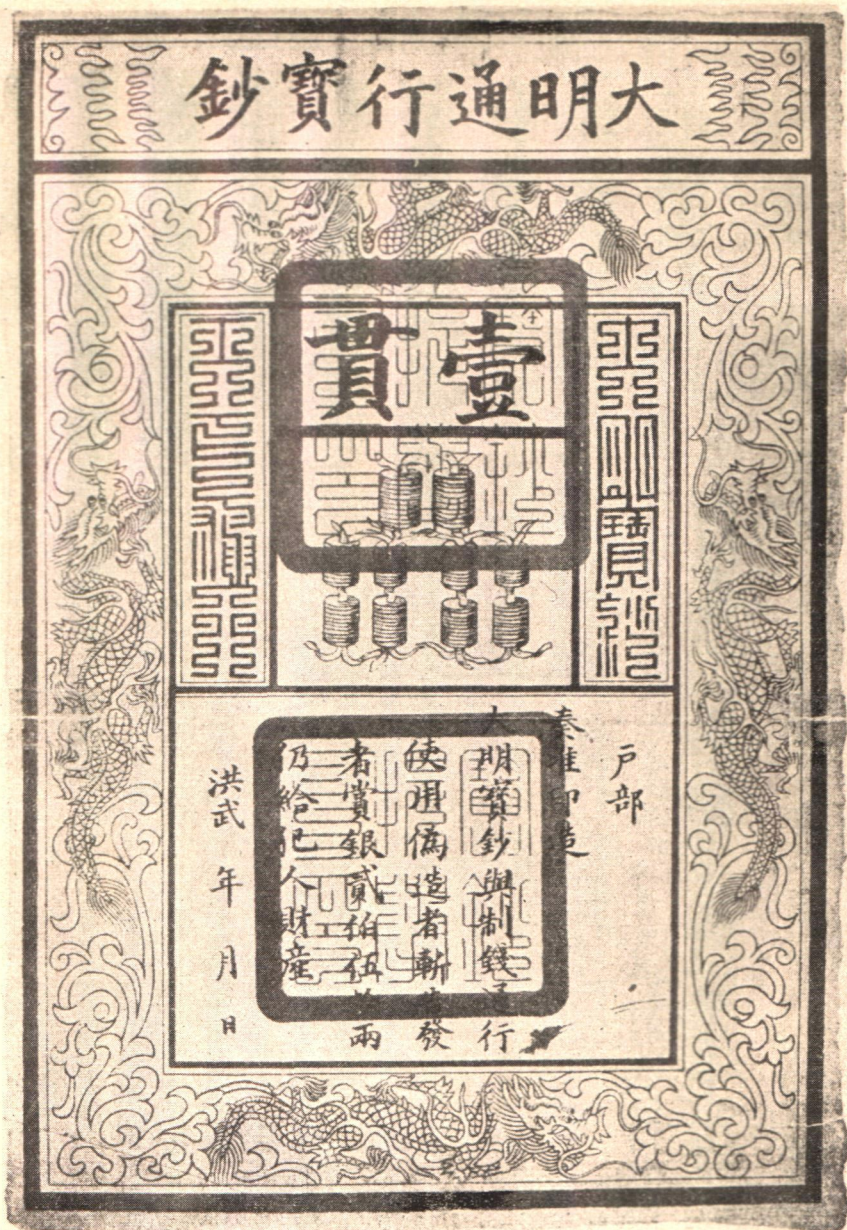 大明通行寶鈔
壹貫
大明寶鈔
天下通行
戶部
奏准印造
大明寶鈔與制錢通行
使用偽造者斬告發
者賞銀貳伯伍拾兩
仍給犯人財產
洪武 年 月 日